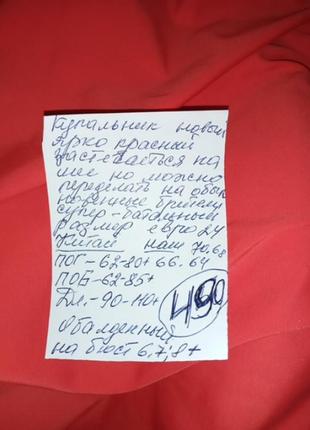 Купальник новый
Ярко красный
застёгается на
шее но можно
переделать на обык
новенные бретели
супер-батальный
Размер евро 24
Китай наш 70.68
ПОГ-62-80+ 66.64
ПОБ-62-85+
Дл.-90-110+
490
Обалденный
на бюст 6,7,8+